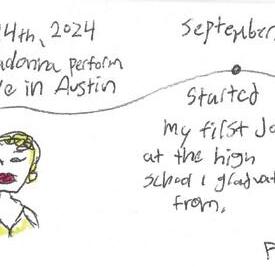 4th, 2024
adonna perform
e in Austin
September
Started
my first Jo
at the high
school I graduat
from.